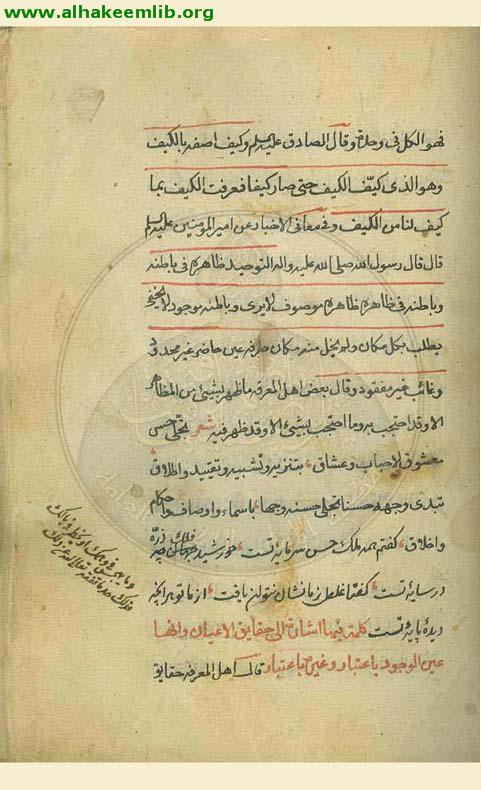 www.alhakeemlib.org
فهو الكل فى وحدة وقال الصادق عليه السلم وكيف اصفه بالكيف
وهو الذى كيّف الكيف حتى صار كيفا فعرفت الكيف بما
كيف لنا من الكيف وفى معانى الاخبار عن امير المؤمنين عليه السلم
قال قال رسول الله صلى الله عليه واله التوحيد ظاهره فى باطنه
وباطنه فى ظاهره ظاهره موصوف لا يرى وباطنه موجود لا يخفى
يطلب بكل مكان ولم يخل منه مكان طرفة عين حاضر غير محدود
وغائب غير مفقود وقال بعض اهل المعرفة ما ظهر بشيئ من المظاهر
الا وقد احتجب به وما احتجب بشيئ الا وقد ظهر فيه شعر تجلى حسن
معشوق لاحباب وعشاق بتنزيه وتشبيه وتقييد واطلاق
تبدى وجهه حسنا تجلى حسنه وجها باسماء واوصاف واحكام
واخلاق كفتم همه ملك حسن سرمايه تست خورشيد فلك چه ذرّه
در سايه تست كفتا غلطى زما نشان نتوان يافت از ما تو هر انچه
ديدۀ پايه تست كلمة فيها اشارة الى حقايق الاعيان وانها
عين الوجود باعتبار وغيره باعتبار قال اهل المعرفة حقايق